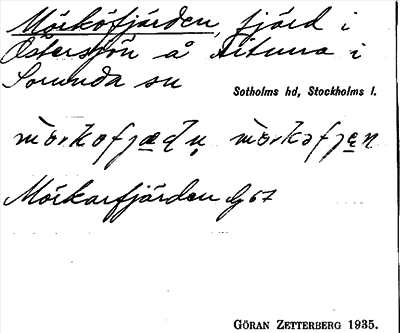 Mörköfjärden, fjärd i
Östersjön å Fituna i
Sorunda sn
Sotholms hd, Stockholms l.
Mörkarfjärden G 67
GÖRAN ZETTERBERG 1935.